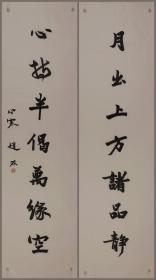 月出上方諸品靜
心持半偈萬緣空